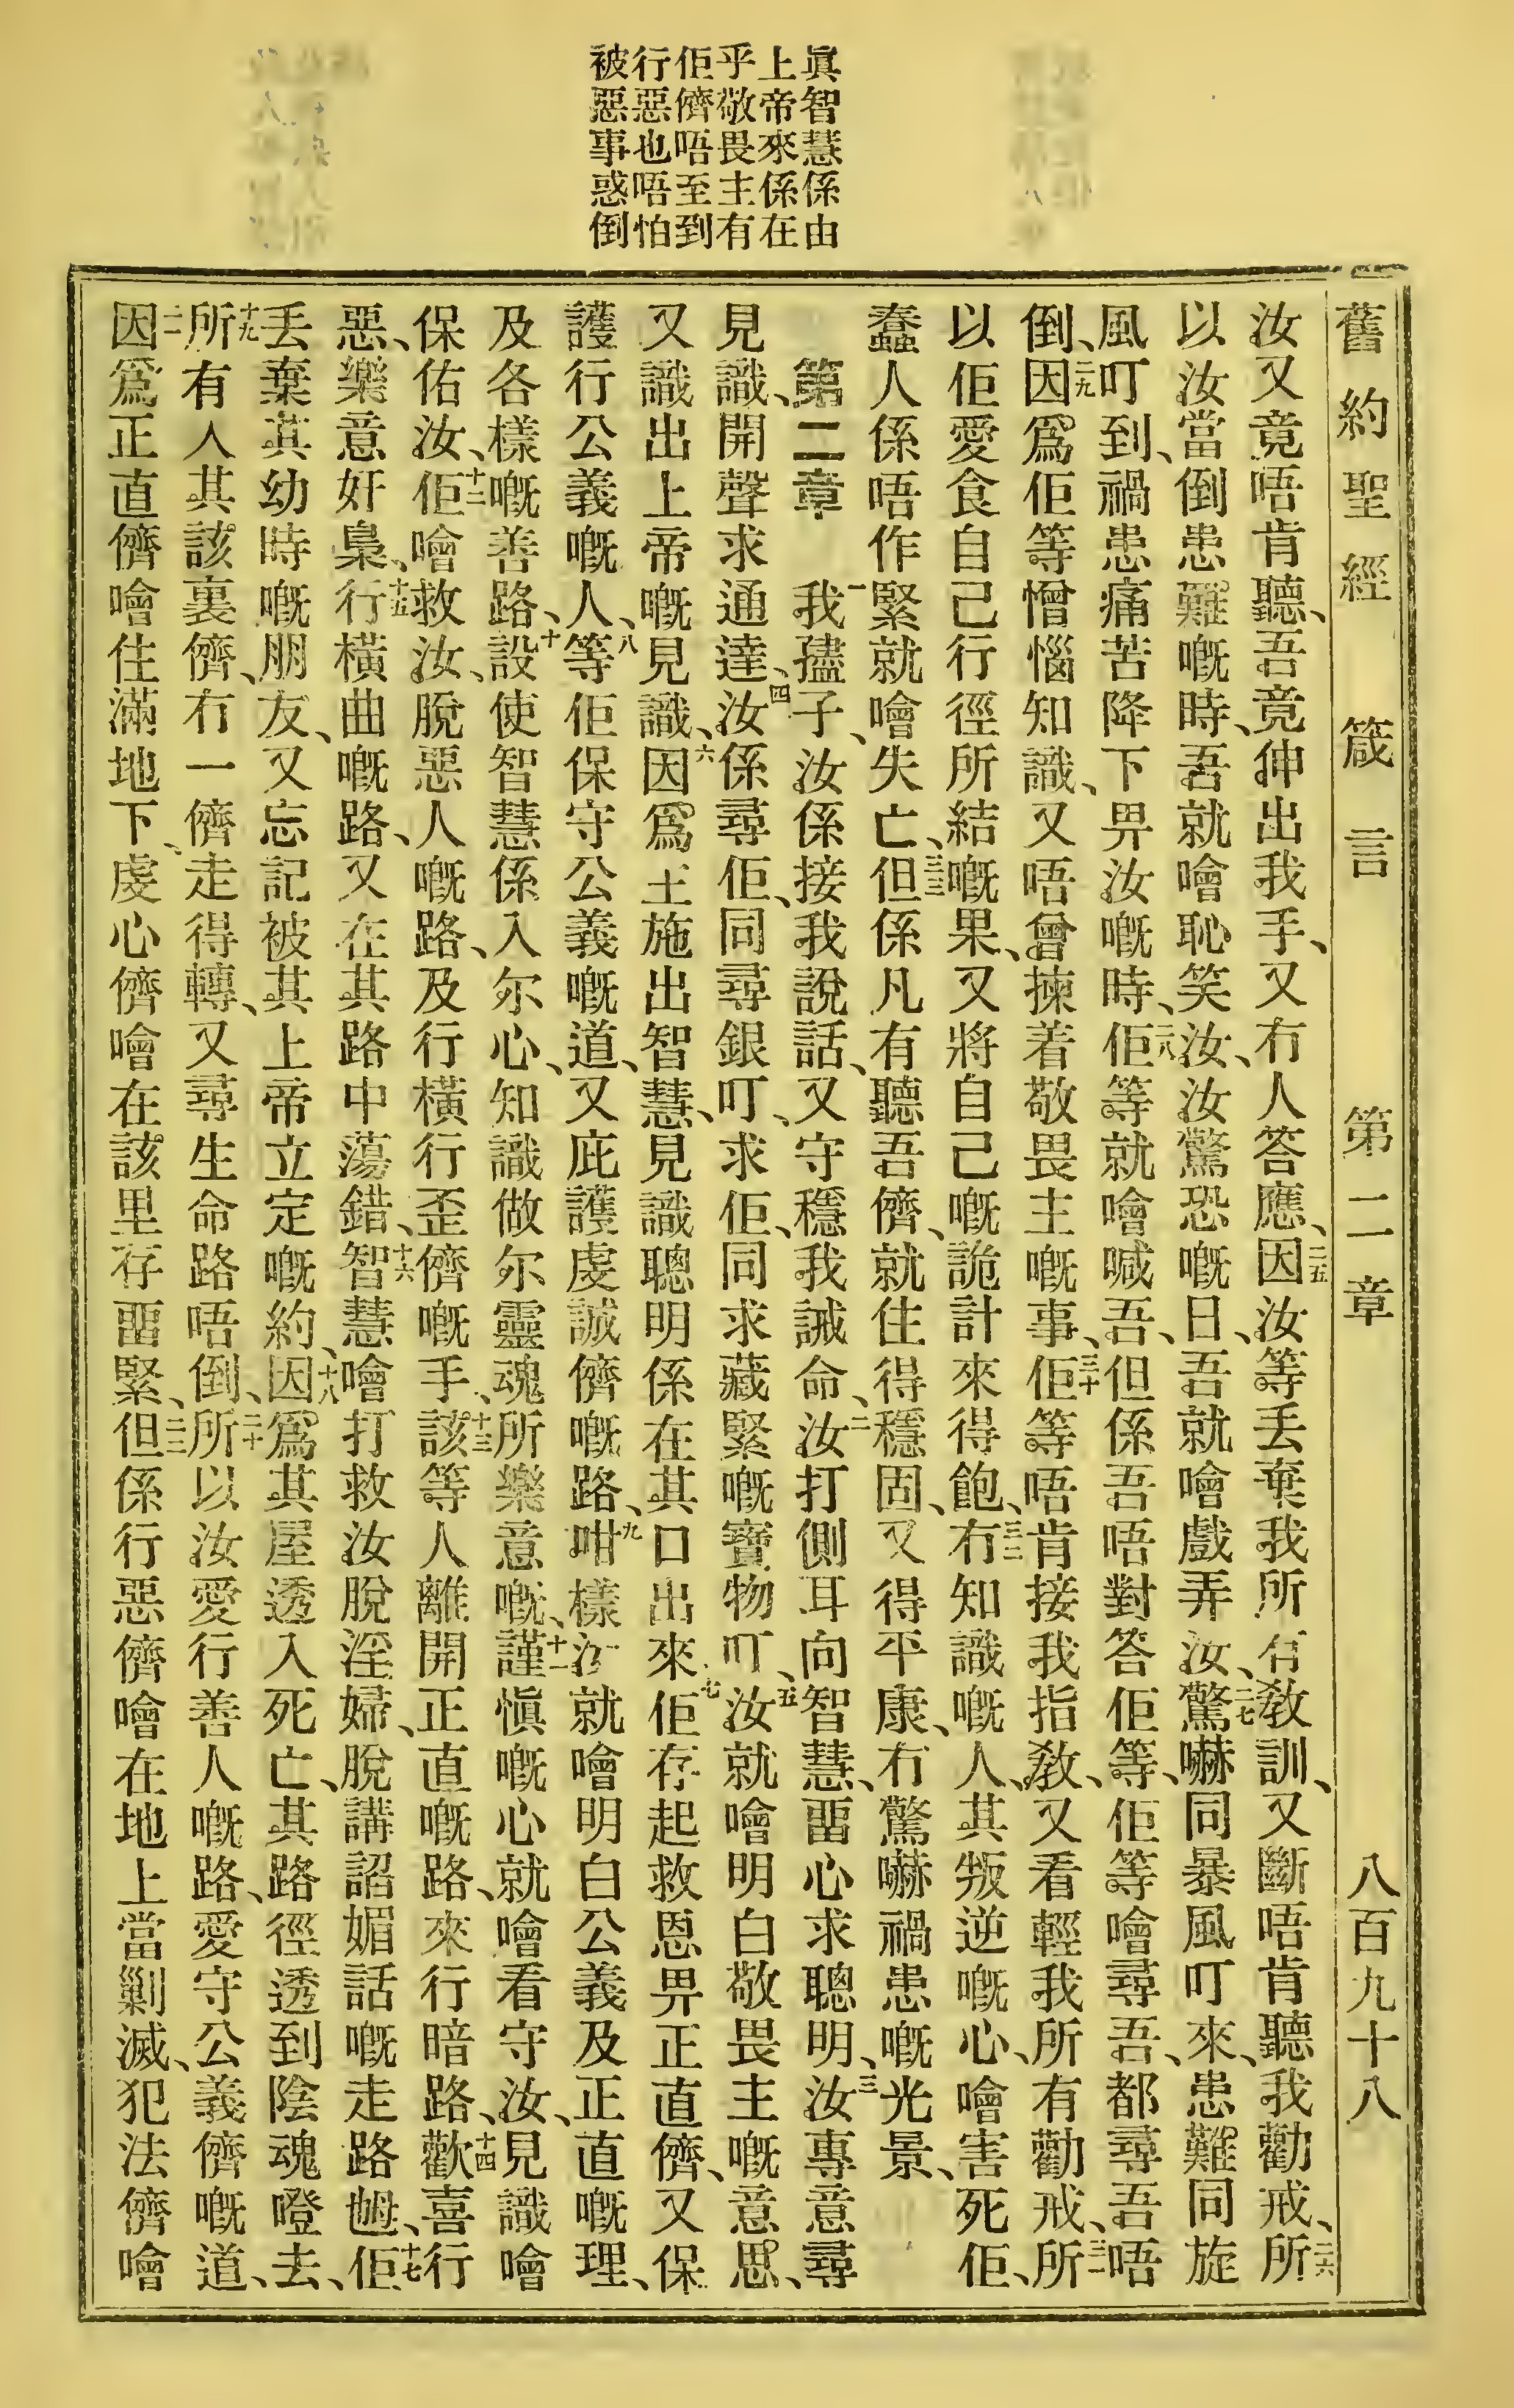 眞智慧係由
上帝來係在
乎敬畏主有
佢儕唔至到
行惡也唔怕
被惡事惑倒
舊約聖經 箴言 第二章 八百九十八
汝又竟唔肯聽、吾竟伸出我手、又冇人答應、二五因汝等丟棄我所有敎訓、又斷唔肯聽我勸戒、二六所
以汝當倒患難嘅時、吾就噲恥笑汝、汝驚恐嘅日、吾就噲戲弄汝、二七驚嚇同暴風叮來、患難同旋
風叮到、禍患痛苦降下畀汝嘅時、二八佢等就噲喊吾、但係吾唔對答佢等、佢等噲尋吾、都尋吾唔
倒、二九因爲佢等憎惱知識、又唔曾揀着敬畏主嘅事、三十佢等唔肯接我指敎、又看輕我所有勸戒、三一所
以佢愛食自己行徑所結嘅果、又將自己嘅詭計來得飽、三二冇知識嘅人、其叛逆嘅心、噲害死佢、
蠢人係唔作緊就噲失亡、三三但係凡有聽吾儕、就住得穩固、又得平康、冇驚嚇禍患嘅光景、
第二章 一我孻子、汝係接我說話、又守穩我誡命、二汝打側耳向智慧、畱心求聰明、三汝專意尋
見識、開聲求通達、四汝係尋佢、同尋銀叮、求佢、同求藏緊嘅寶物叮、五汝就噲明白敬畏主嘅意思、
又識出上帝嘅見識、六因爲主施出智慧、見識聰明係在其口出來、七佢存起救恩畀正直儕、又保
護行公義嘅人、八等佢保守公義嘅道、又庇護虔誠儕嘅路、九咁樣汝就噲明白公義及正直嘅理、
及各樣嘅善路、十設使智慧係入尔心、知識做尔靈魂所樂意嘅、十一謹愼嘅心就噲看守汝、見識噲
保佑汝、十二佢噲救汝、脫惡人嘅路、及行橫行歪儕嘅手、十三該等人離開正直嘅路、來行暗路、十四歡喜行
惡、樂意奸梟、十五行橫曲嘅路、又在其路中蕩錯、十六智慧噲打救汝脫淫婦、脫講諂媚話嘅走路乸、十七佢
丟棄其幼時嘅朋友、又忘記被其上帝立定嘅約、十八因爲其屋透入死亡、其路徑透到陰魂嶝去、
十九所有入其該裏儕、冇一儕走得轉、又尋生命路唔倒、二十所以汝愛行善人嘅路、愛守公義儕嘅道、
二一因爲正直儕噲住滿地下、虔心儕噲在該里存畱緊、二二但係行惡儕噲在地上當剿滅、犯法儕噲